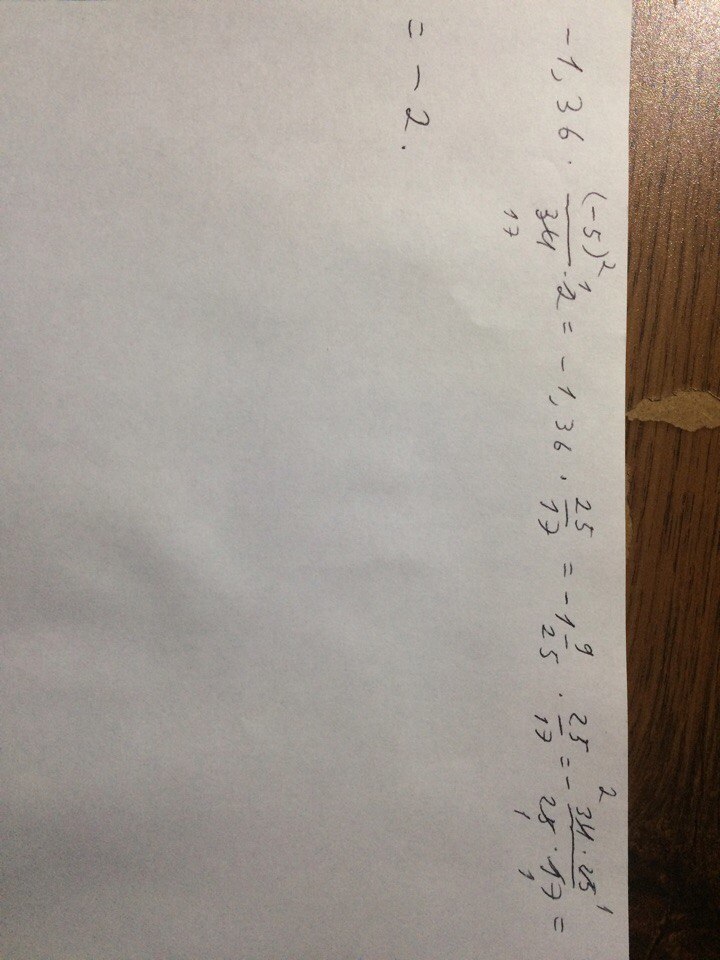 -1,36 · (-5)²/34 17 · 2 1 = -1,36 · 25/17 = -1 9/25 · 25/17 = - 34 2 · 25 1/25 1 · 17 1 =
= -2.